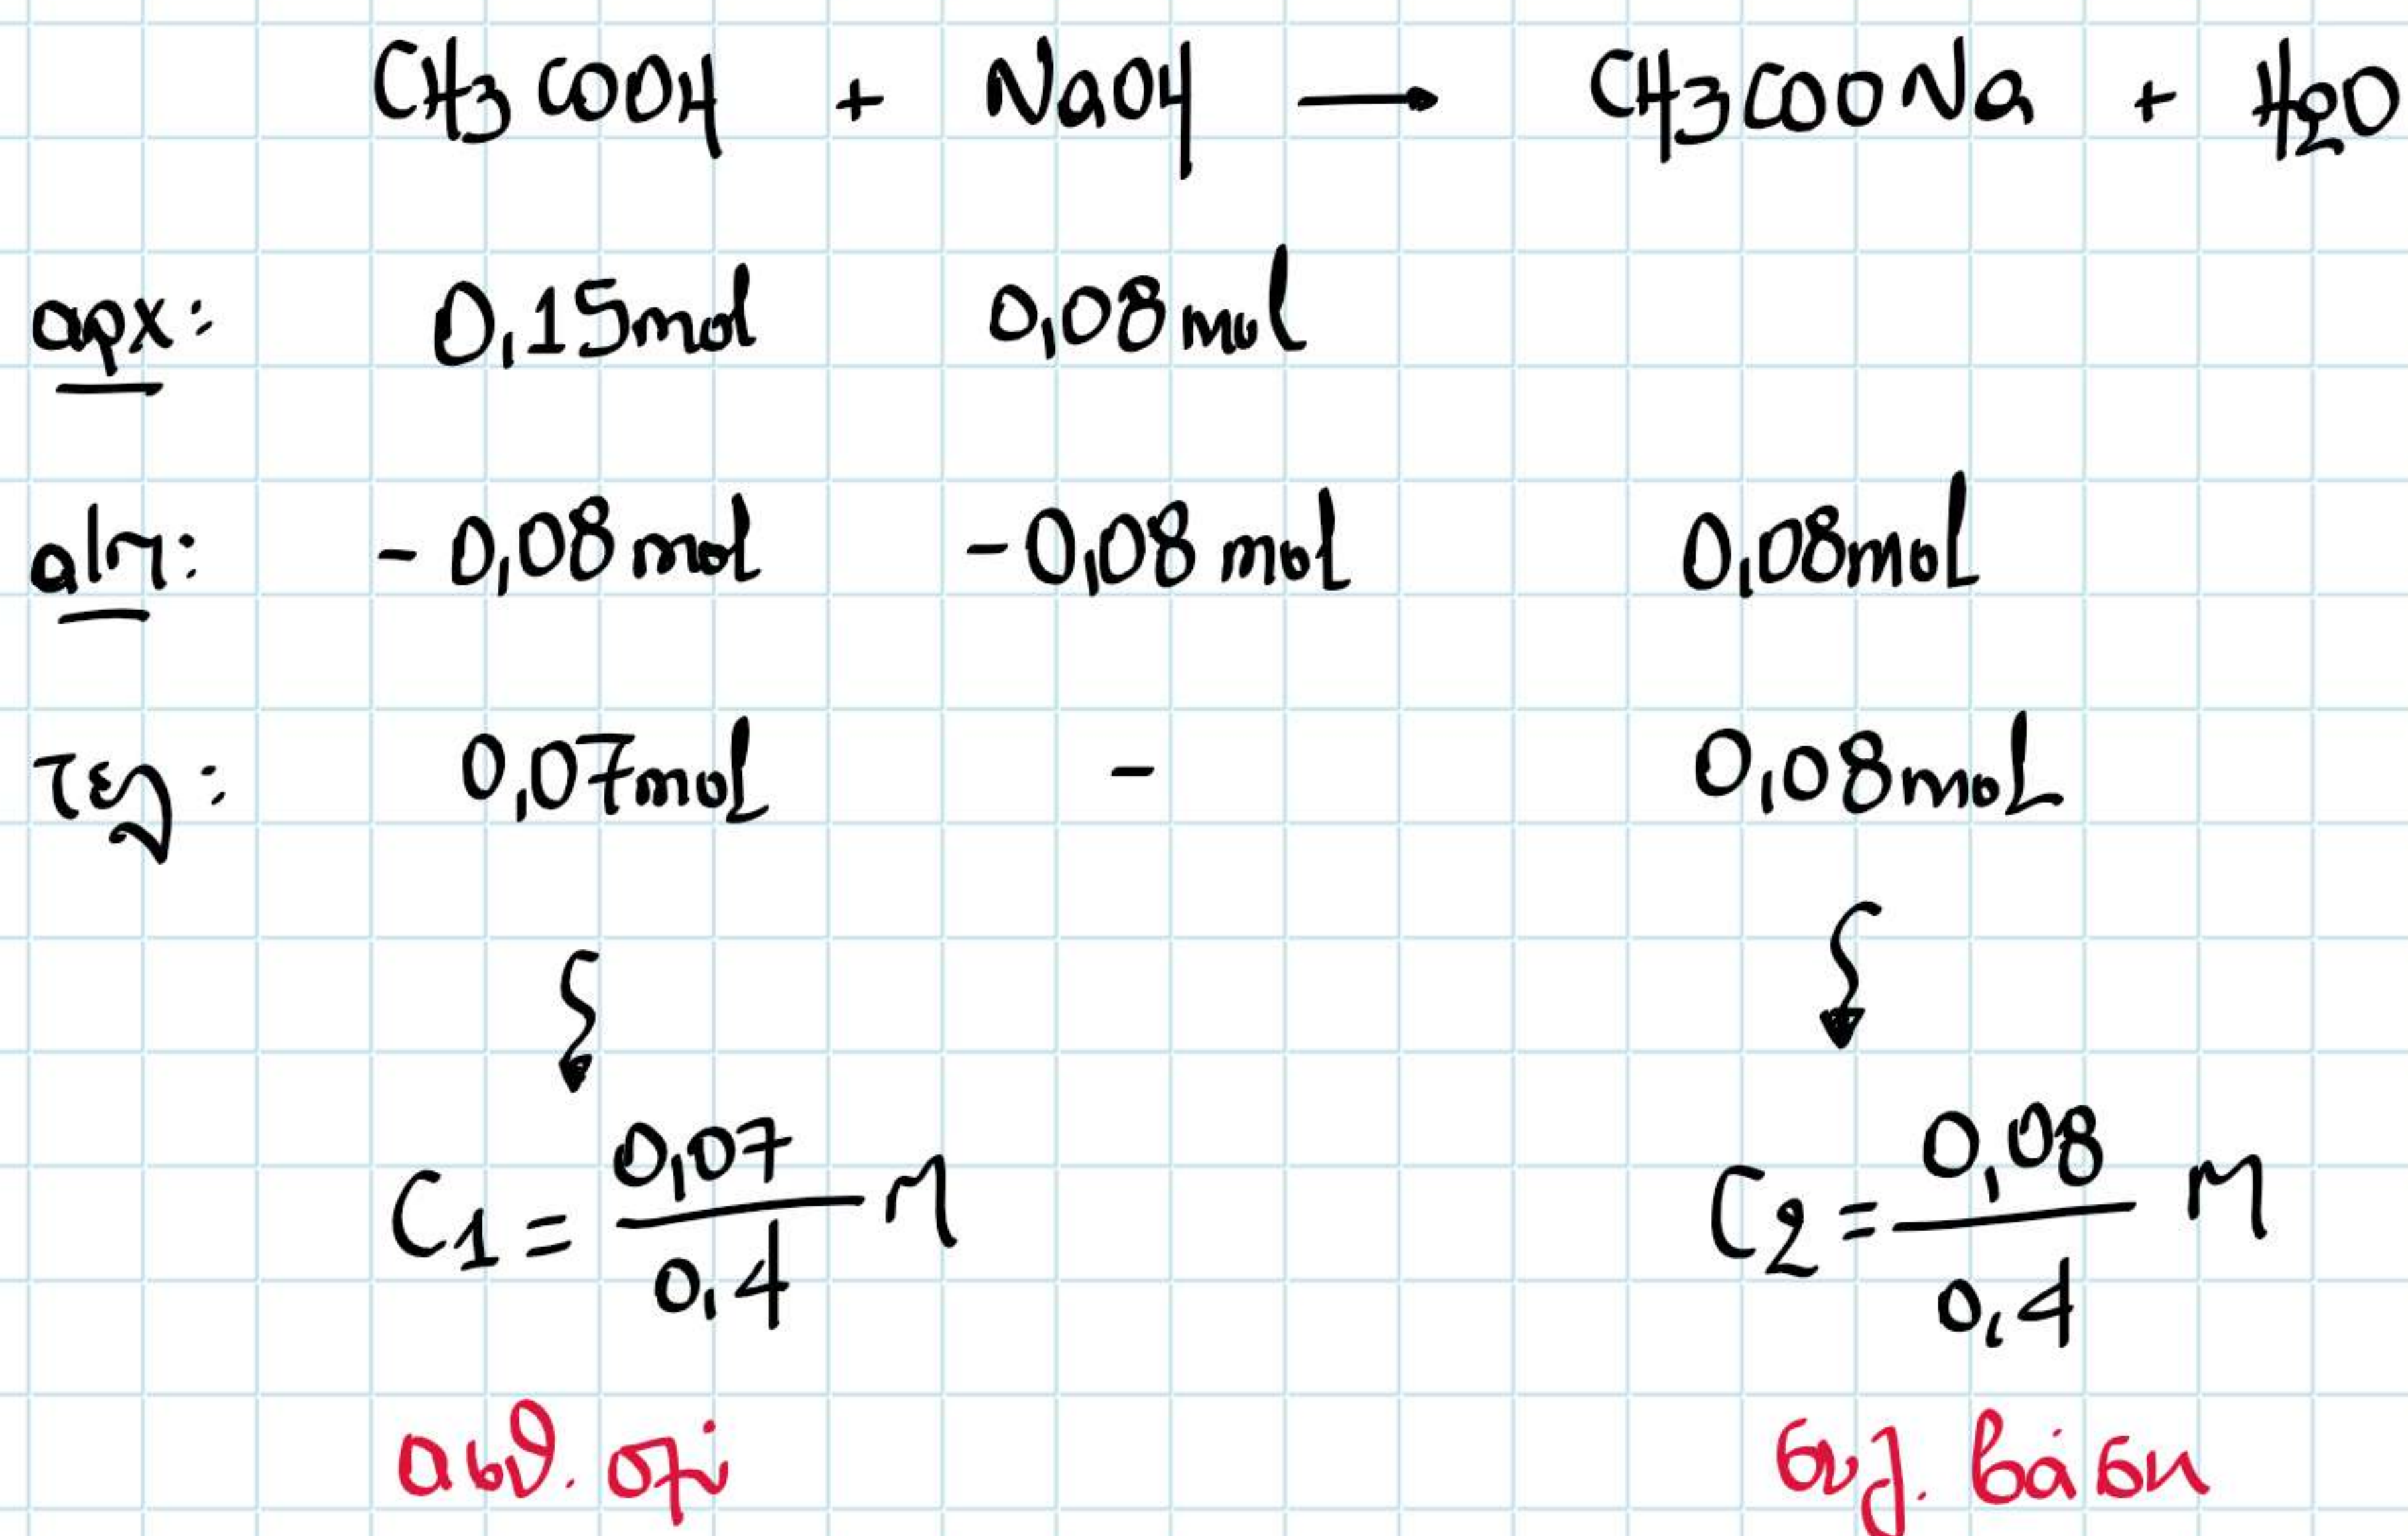 CH3COOH + NaOH → CH3COONa + H2O
αρχ: 0,15mol 0,08mol
αλη: -0,08mol -0,08mol 0,08mol
τελ: 0,07mol - 0,08mol
C1 = 0,07/0,4 M C2 = 0,08/0,4 M
ασθ. οξύ συζ. βάση